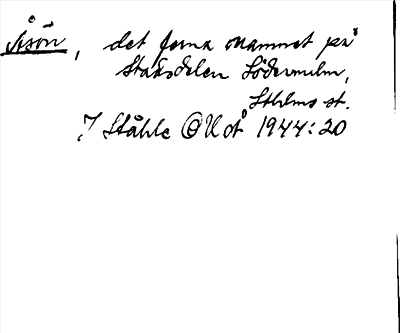 Åsön, det forna namnet på
Stadsdelen Södermalm,
Sthlms st.
Ståhle OUÅ 1944:20